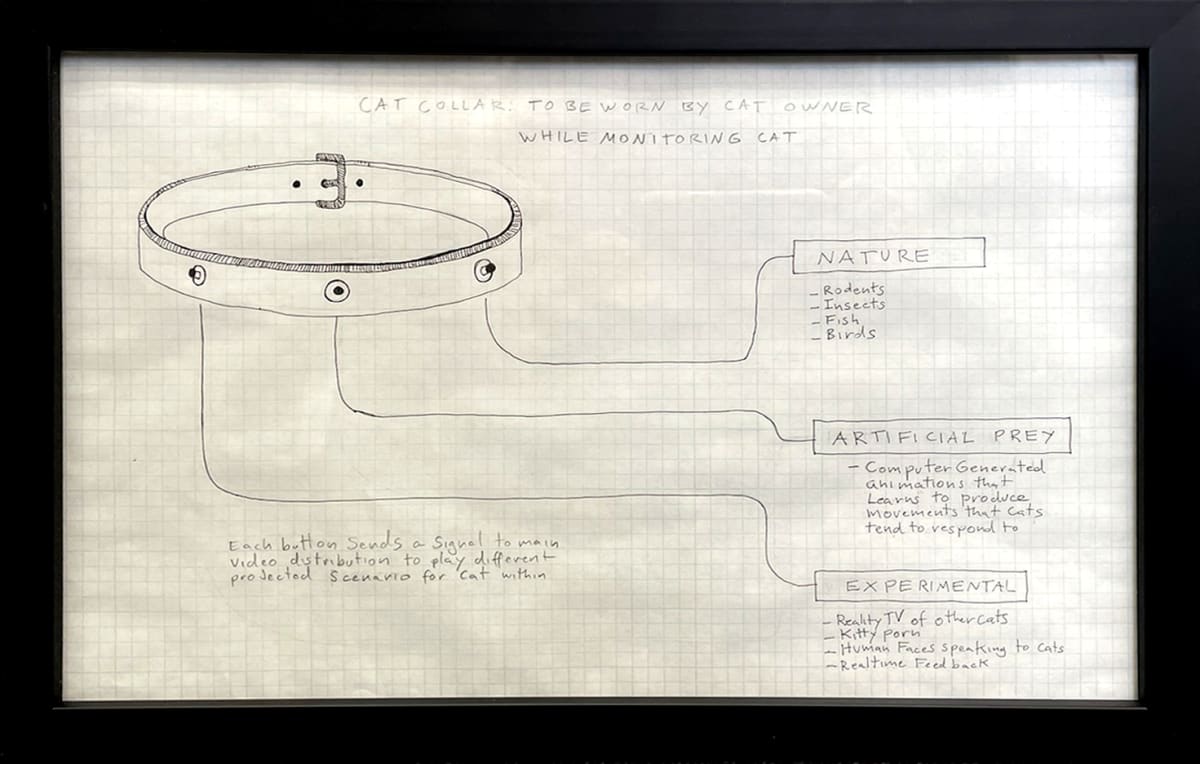 CAT COLLAR: TO BE WORN BY CAT OWNER
WHILE MONITORING CAT
NATURE
- Rodents
- Insects
- Fish
- Birds
ARTIFICIAL PREY
- Computer Generated
animations that
Learns to produce
movements that cats
tend to respond to
Each button sends a signal to main
video distribution to play different
projected scenario for cat within
EXPERIMENTAL
- Reality TV of other cats
- Kitty porn
- Human Faces speaking to cats
- Realtime Feedback